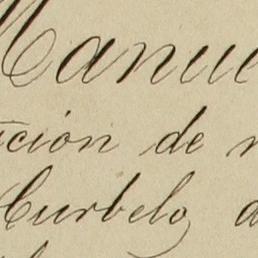 Manue
ción de
Curbelo,